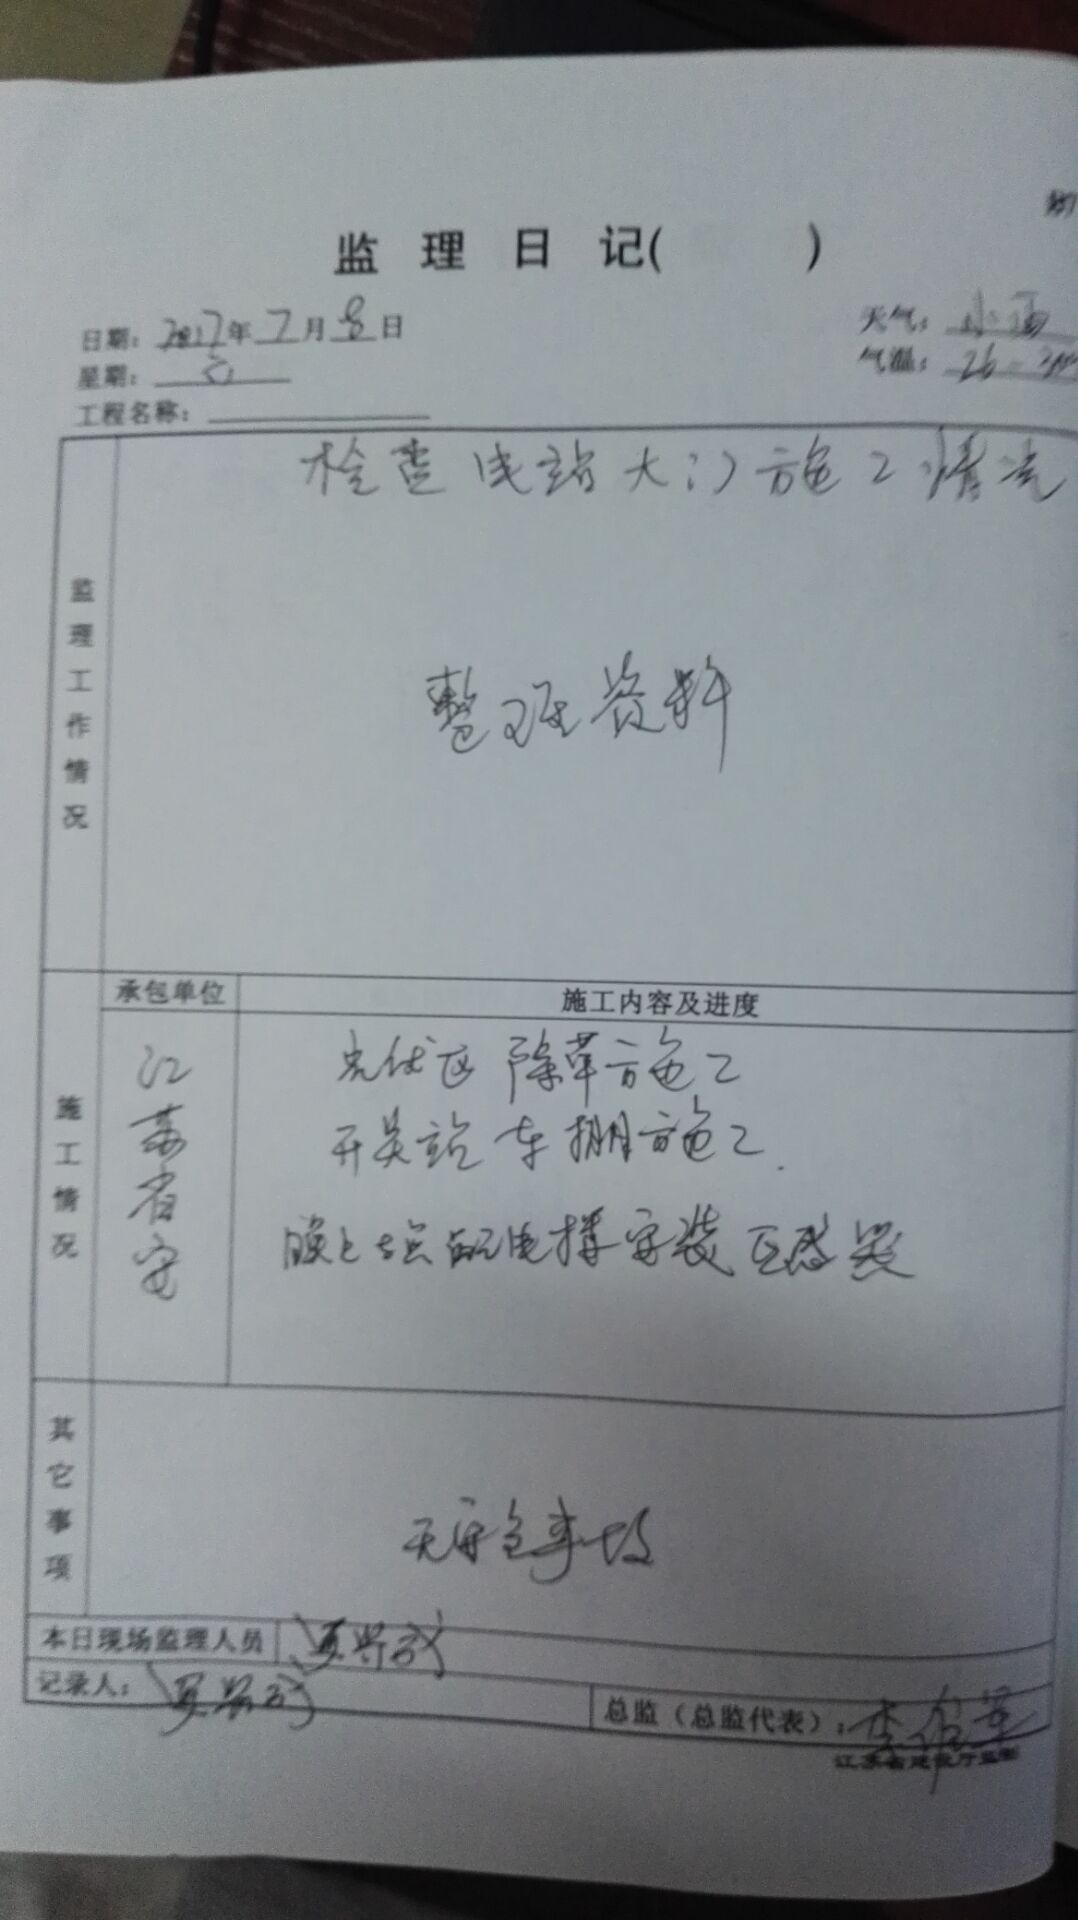 监 理 日 记( )
日期：2017年7月8日
天气：小雨
星期：六
气温：26-
工程名称：
监理工作情况
检查电站大门施工情况
整理资料
施工情况
承包单位
施工内容及进度
江苏省安
光伏区除草施工
开关站车棚施工.
配电 安装互感器
其它事项
无安全事故
本日现场监理人员
记录人：
总监（总监代表）：李
江苏省建设厅监制